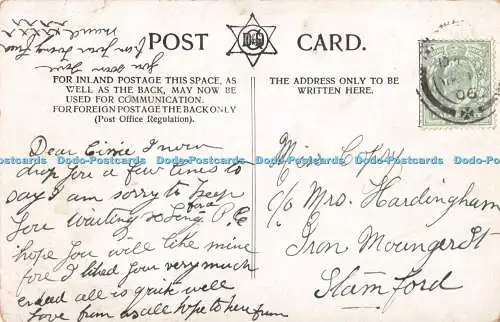 POST CARD.
FOR INLAND POSTAGE THIS SPACE, AS
WELL AS THE BACK, MAY NOW BE
USED FOR COMMUNICATION.
FOR FOREIGN POSTAGE THE BACK ONLY
(Post Office Regulation).
THE ADDRESS ONLY TO BE
WRITTEN HERE.
06
Dear Cissie I now
drop you a few lines to
say I am sorry to keep
you waiting so long for a P.C
hope you will like mine
for I liked your very much
indeed all is quite well
love from us all hope to here from
you soon from
xxxx
Miss Coppy
c/o Mrs. Hardingham
Iron Mounger St
Stamford
Postcards Postcards Postcards Postcards Postcards Postcards Postcards Postcards Postcards